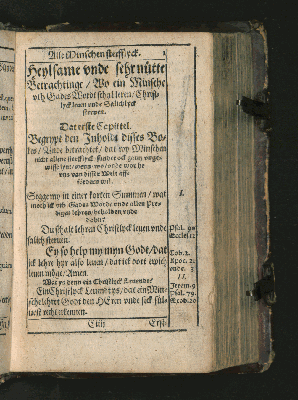 Alle Minschen sterfflyck. 1
Heylsame vnde sehr nütte
Betrachtinge / Wo ein Minsche
vth Gades Wordt schal leren / Christ-
lyck leuen vnde Salichlyck
steruen.
Dat erste Capittel.
Begrypt den Inholdt disses Bo-
kes / Vnde betrachtet / dat wy Minschen
nicht allene sterfflyck
uns van disser Welt aff-
fordern wil.
Segge my in einer korten Summen / wat
moth ick vth Gades Worde vnde allen Pre-
digen lehren / beholden vnde
dohn?
Du schalt lehren Christlyck leuen vnde
salich steruen.
Ey so help my myn Godt / dat
ick lehre hyr also leuen / dat ick dort ewich
leuen möge / Amen.
Wat ys denn ein Christlyck Leuendt?
Ein Christlyck Leuendt ys / dat ein Min-
sche lehre Godt den HEren vnde sick sülu-
uest recht erkennen.
I.
Psal. 90
Eccles. 12
Tob. 4.
Apoc. 2.
vnde. 3
II.
Jerem. 9
Psal. 79.